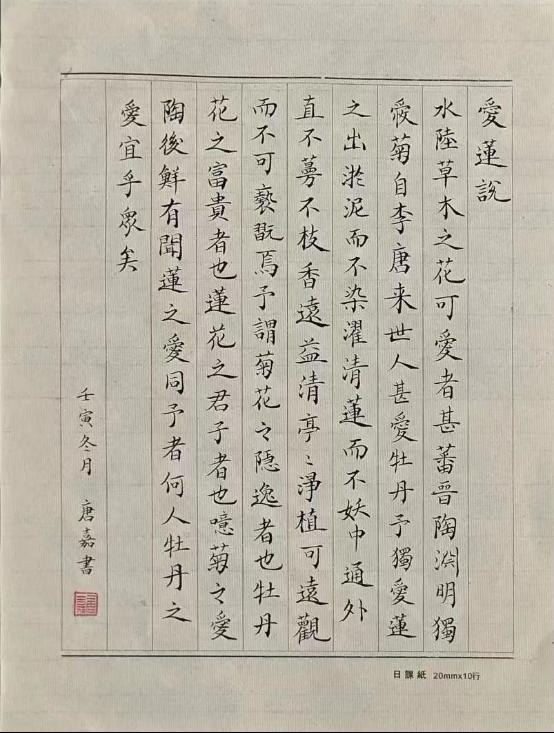 愛蓮說
水陸草木之花可愛者甚蕃晉陶淵明獨
愛菊自李唐来世人甚愛牡丹予獨愛蓮
之出淤泥而不染濯清蓮而不妖中通外
直不蔓不枝香遠益清亭〻淨植可遠觀
而不可褻翫焉予謂菊花之隱逸者也牡丹
花之富貴者也蓮花之君子者也噫菊之愛
陶後鮮有聞蓮之愛同予者何人牡丹之
愛宜乎眾矣
壬寅冬月 唐嘉書
日課紙 20mmx10行